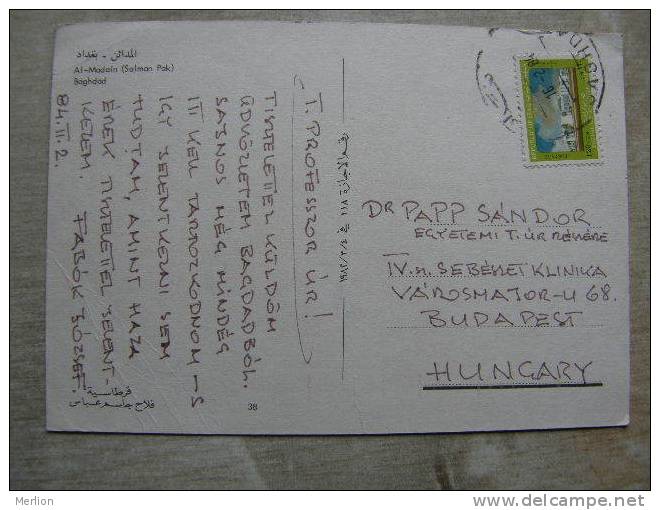 المدائن - بغداد
Al-Madain (Salman Pak)
Baghdad
T. PROFESSZOR ÚR!
TISZTELETTEL KÜLDÖM
ÜDVÖZLETEM BAGDADBÓL.
SAJNOS MÉG MINDÉG
ITT KELL TARTÓZKODNOM - S
ÍGY JELENTKEZNI SEM
TUDTAM, AMINT HAZA
ÉREK TISZTELETTEL JELENT-
KEZEM. TABÓK JÓZSEF.
84. III. 2.
قرطاسية
فلاح جاسم عباس
38
DR PAPP SÁNDOR
EGYETEMI T. ÚR RÉSZÉRE
IV. sz. SEBÉSZET KLINIKA
VÁROSMAJOR-U 68.
BUDAPEST
HUNGARY
Merlion
www.delcampe.net